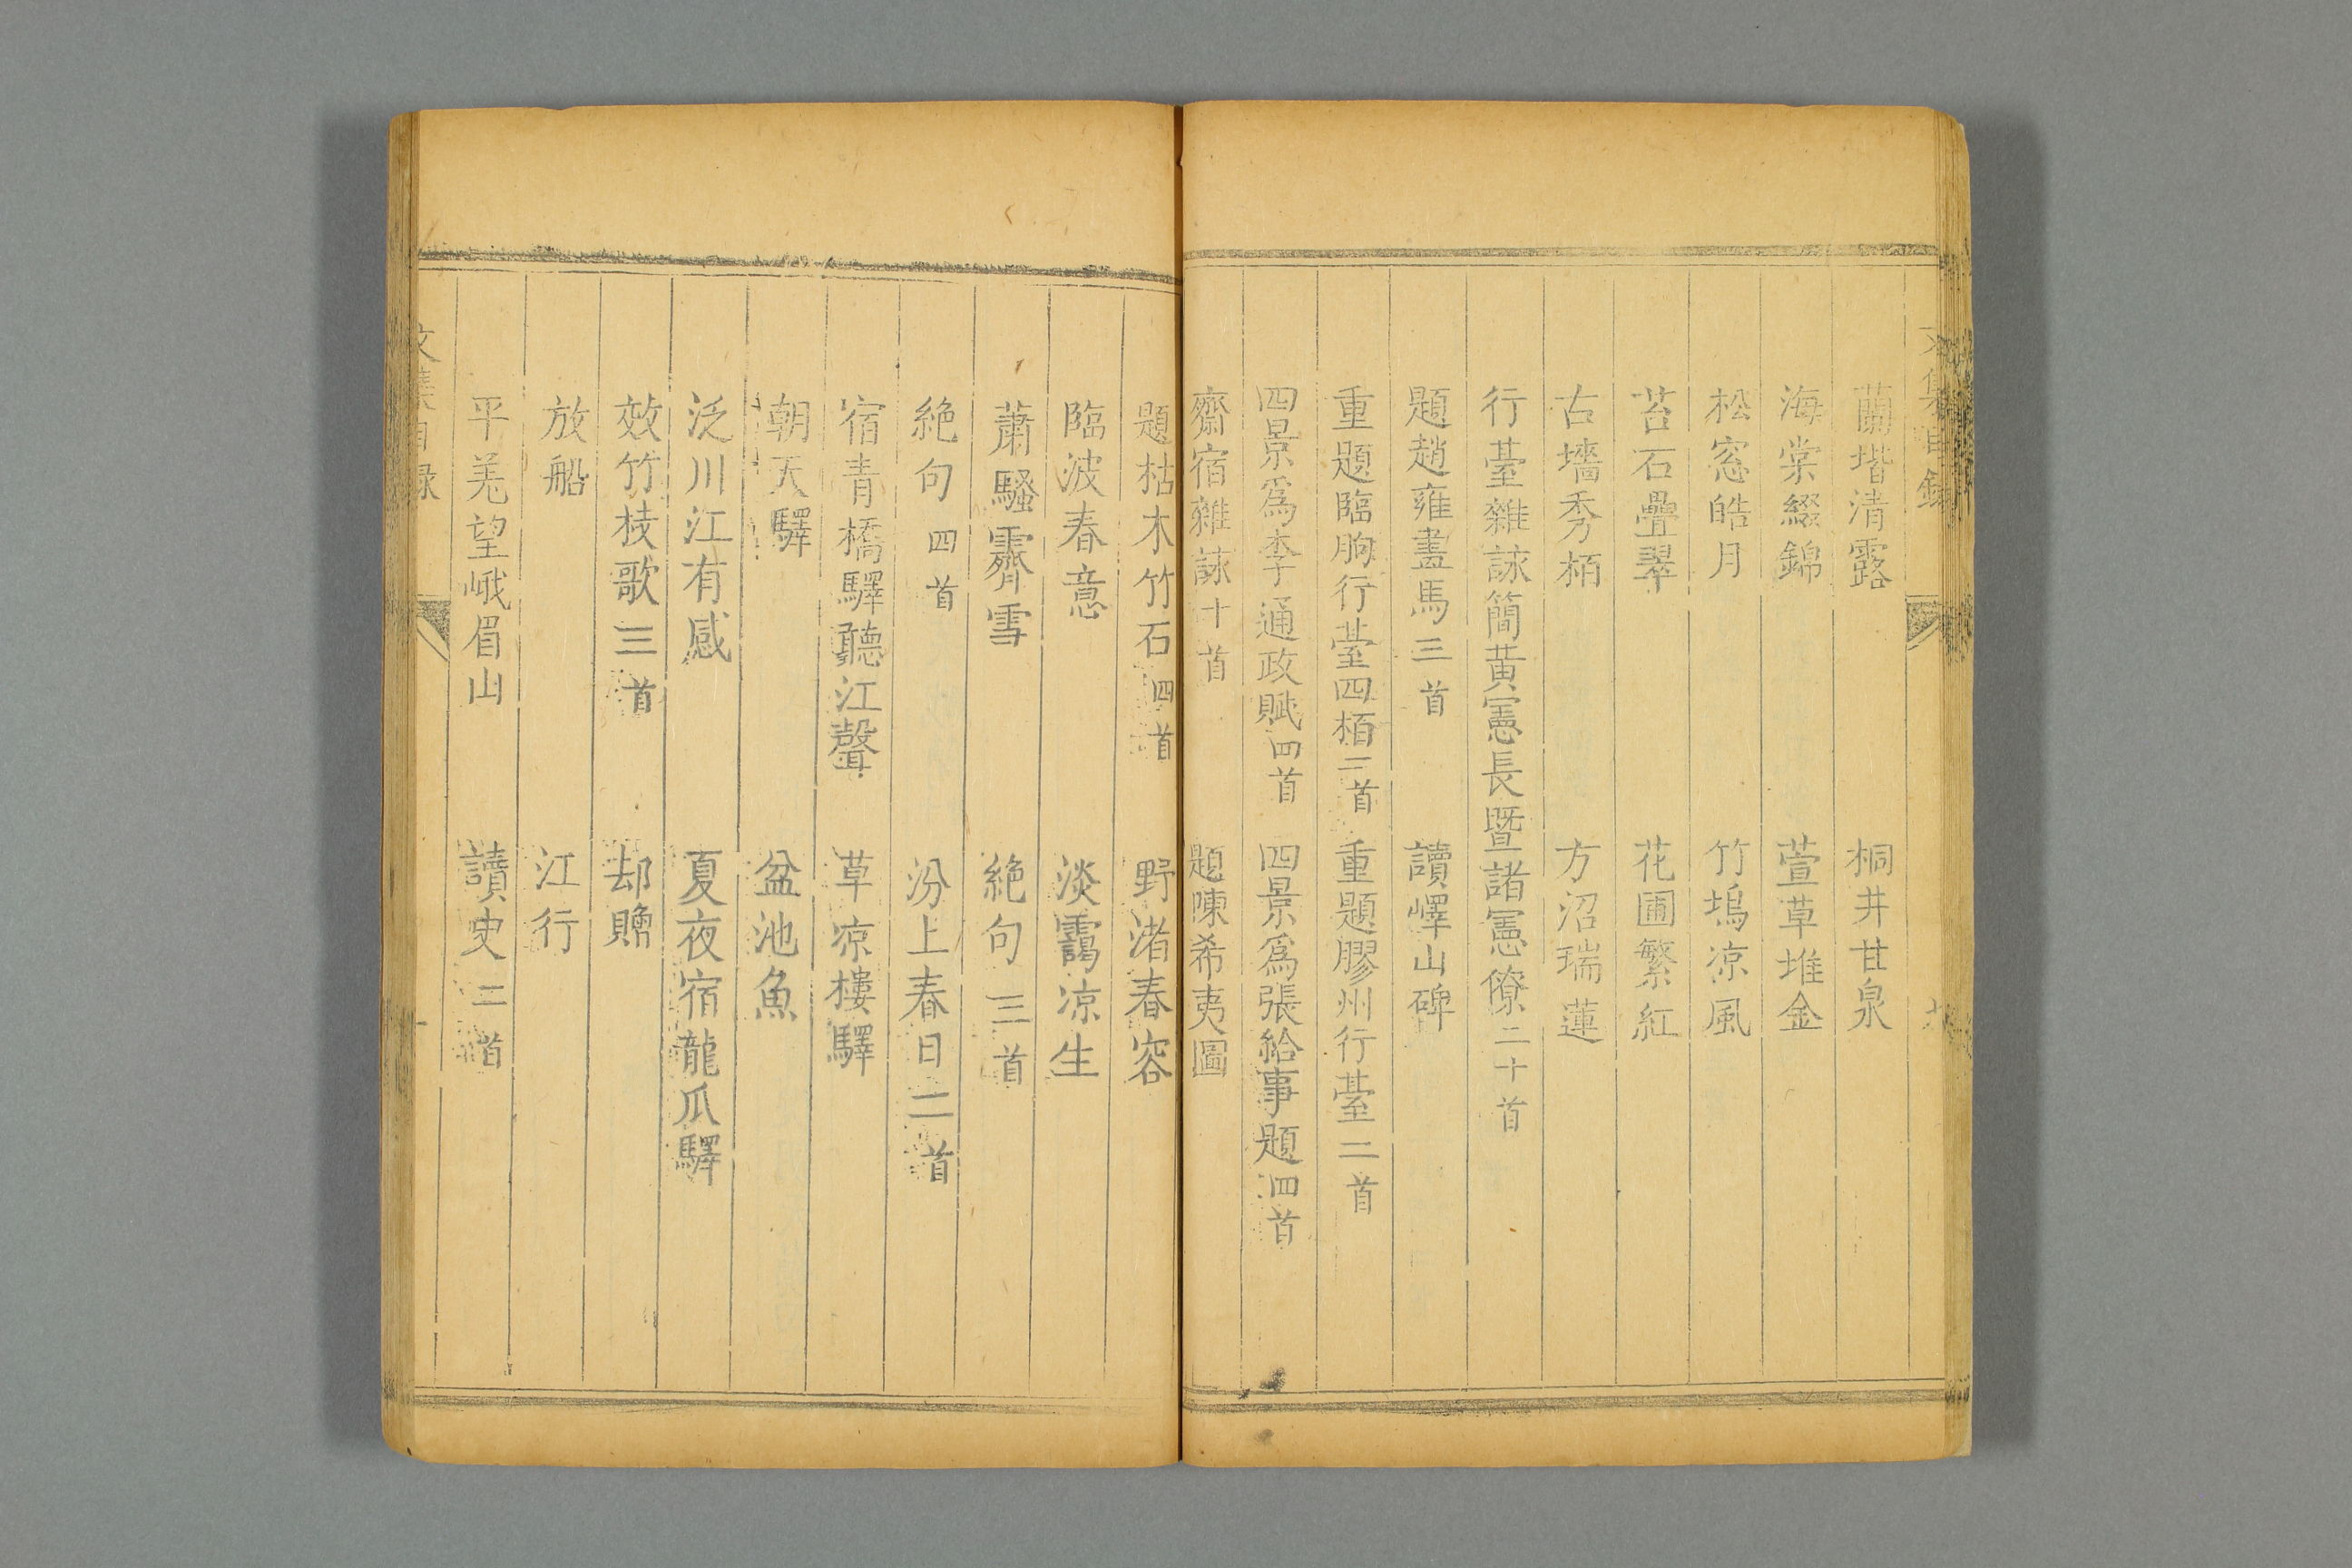 蘭堦清露　桐井甘泉
海棠綴錦　萱草堆金
松窓皓月　竹塢凉風
苔石疊翠　花圃繁紅
古墻秀栢　方沼瑞蓮
行臺雜詠簡黃憲長曁諸憲僚二十首
題趙雍畫馬三首　讀嶧山碑
重題臨朐行臺四栢二首　重題膠州行臺二首
四景爲李通政賦四首　四景爲張給事題四首
齋宿雜詠十首　題陳希夷圖
題枯木竹石四首　野渚春容
臨波春意　淡靄凉生
蕭騷霽雪　絶句三首
絶句四首　汾上春日二首
宿青橋驛聽江聲　草凉樓驛
朝天驛　盆池魚
泛川江有感　夏夜宿龍瓜驛
效竹枝歌三首　却贍
放船　江行
平羌望峨眉山　讀史二首
文集目録